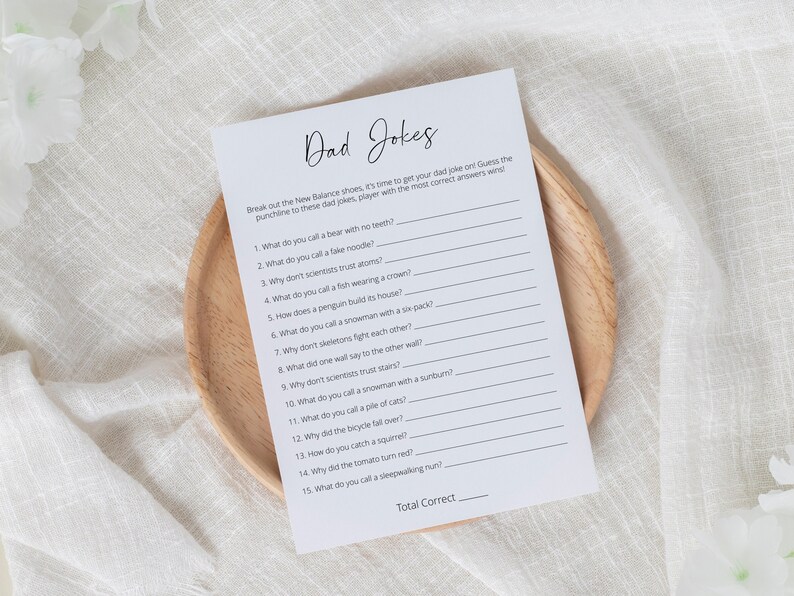 Dad Jokes
Break out the New Balance shoes, it's time to get your dad joke on! Guess the
punchline to these dad jokes, player with the most correct answers wins!
1. What do you call a bear with no teeth?
2. What do you call a fake noodle?
3. Why don't scientists trust atoms?
4. What do you call a fish wearing a crown?
5. How does a penguin build its house?
6. What do you call a snowman with a six-pack?
7. Why don't skeletons fight each other?
8. What did one wall say to the other wall?
9. Why don't scientists trust stairs?
10. What do you call a snowman with a sunburn?
11. What do you call a pile of cats?
12. Why did the bicycle fall over?
13. How do you catch a squirrel?
14. Why did the tomato turn red?
15. What do you call a sleepwalking nun?
Total Correct